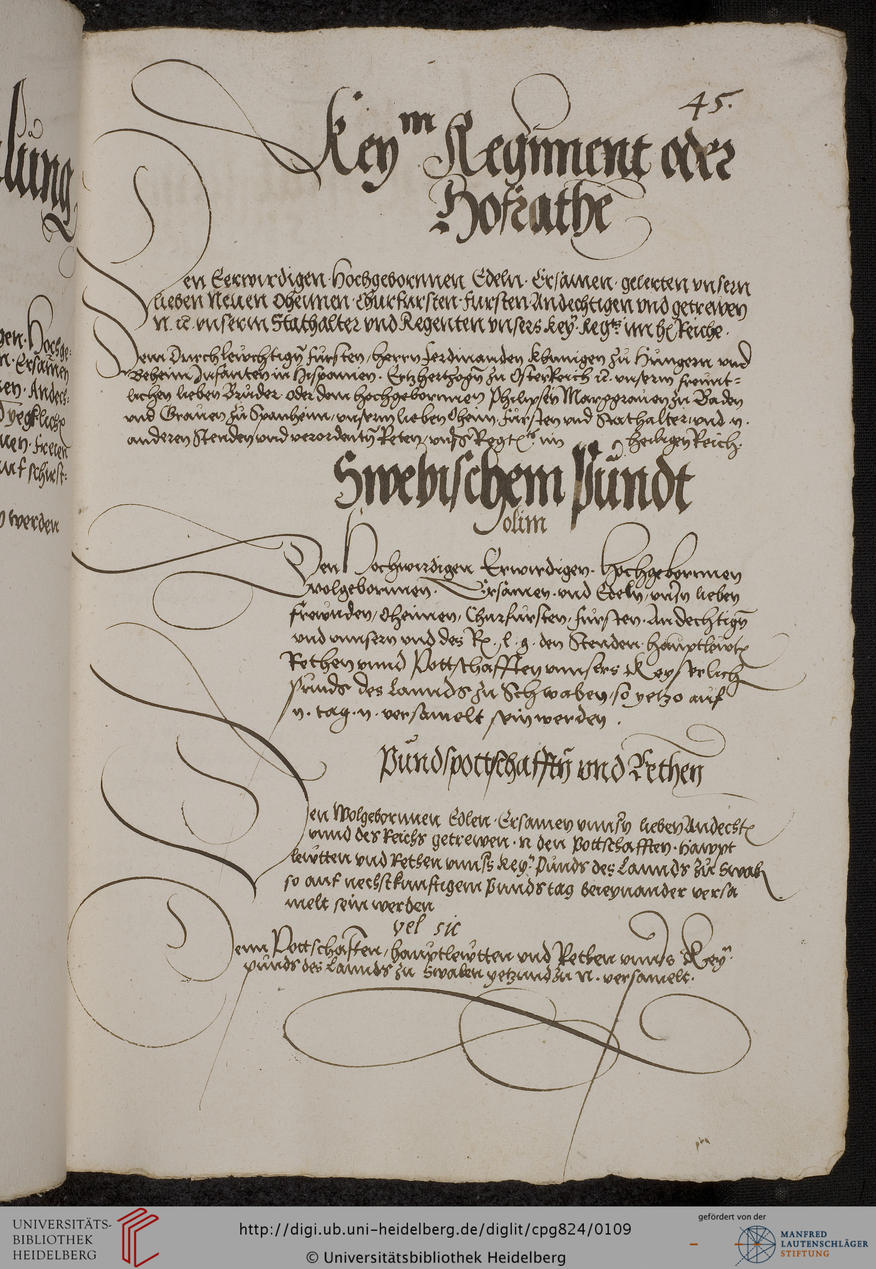 45.
Keyᵐ Regiment oder
Hofrathe
Den Eerwirdigen Hochgebornnen Edeln Ersamen gelerten vnsern
lieben Neuen Oheimen Churfursten fursten Andechtigen vnd getrewen
N. ꝛc. vnserm Stathalter vnd Regenten vnsers key. Regts im Reiche.
Dem Durchleuchtign fursten, herrn ferdinanden Khunigen zu Hungern vnd
Beheim Infanten in Hispanien. Ertzhertzogn zu Osterreich ꝛc. vnserm freunt-
lichen lieben Bruder oder dem hochgebornnen Philipsen Marggrauen zu Baden
vnd Grauen zu Spanheim, vnserm lieben Oheim fursten vnd Stathalter, vnd n.
anderen Stenden vnd verordentn Reten, im heiligen Reich.
Swebischem Pundt
olim
Den Hochwirdigen Erwirdigen. Hochgebornnen
Wolgebornnen. Ersamen. vnd Edeln, vnsn lieben
frewnden, Oheimen, Churfursten, fursten. Andechtign
vnd vnnsern vnd des R. den Stenden. hauptlewt
Rethen vnnd Pottschafften vnnsers Keyserlich
punds des Lannds zu Schwaben, so yetzo auf
n. tag. n. versamelt sein werden.
Pundspottschafftn vnd Rethen
Den Wolgebornnen Edlen. Ersamen vnnsn lieben Andecht
vnnd des Reichs getrewen. n den Pottschafften. Hawpt
lewtten vnd Rethen vnns key. Punds des Lannds zu Swab
so auf nechstkunftigem Pundstag beieynander versa
melt sein werden
vel sic
Denn Pottschaften, hauptlewtten vnd Rethen vnns Key.
punds des Lannds zu Swaben yetzund zu N. versamelt.
lung
werden
UNIVERSITÄTS-
BIBLIOTHEK
HEIDELBERG
http://digi.ub.uni-heidelberg.de/diglit/cpg824/0109
© Universitätsbibliothek Heidelberg
gefördert von der
MANFRED
LAUTENSCHLÄGER
STIFTUNG